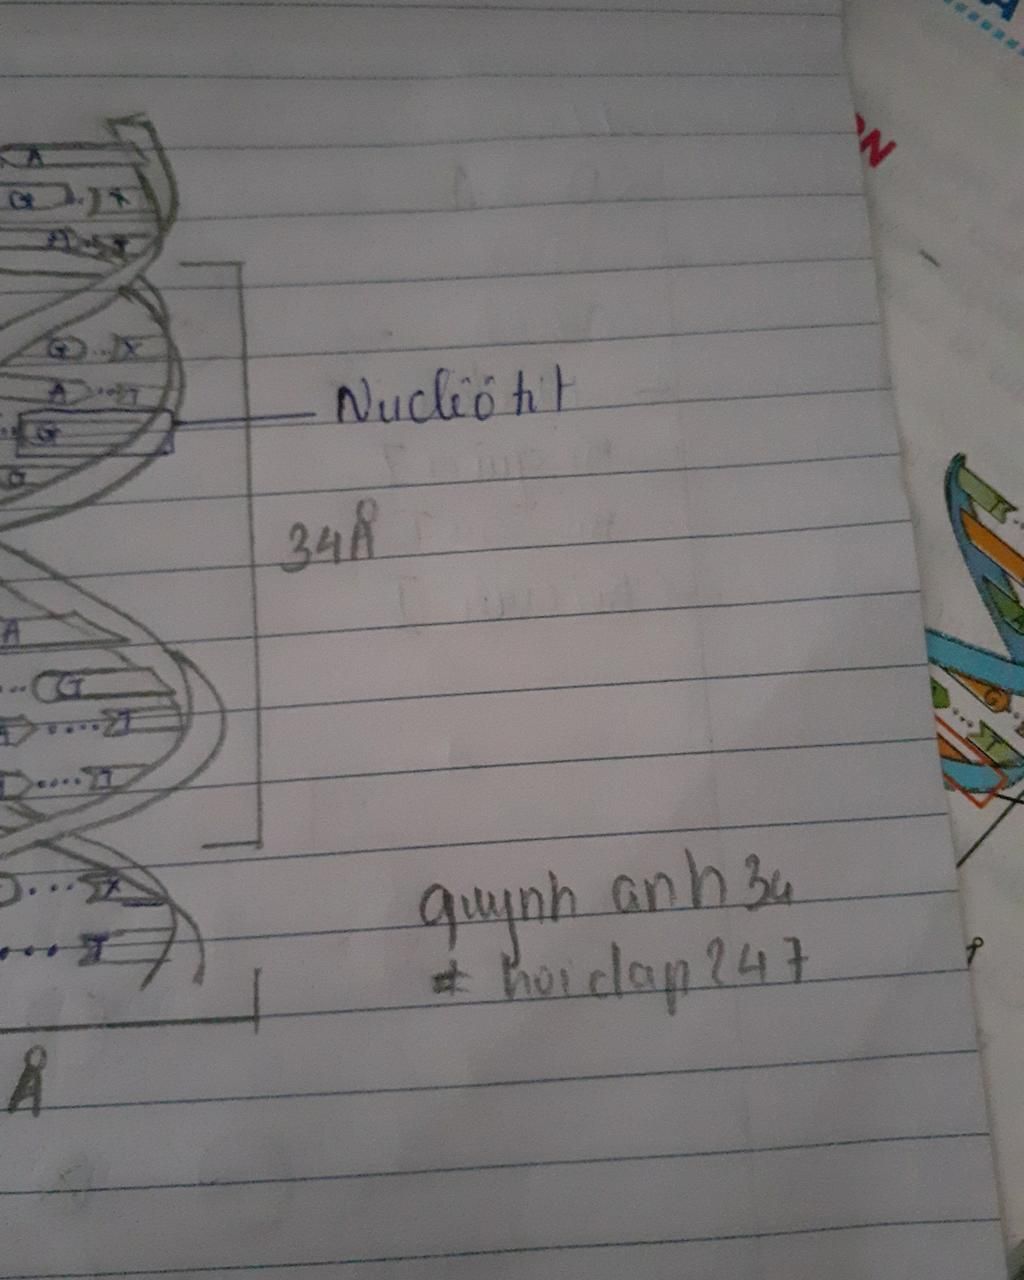 A
G X
A T
G X
A T
G
Nuclêôtit
G
34Å
A
G
A T
T
X
quynh anh 34
T
# hoidap247
Å
N
A
G
T